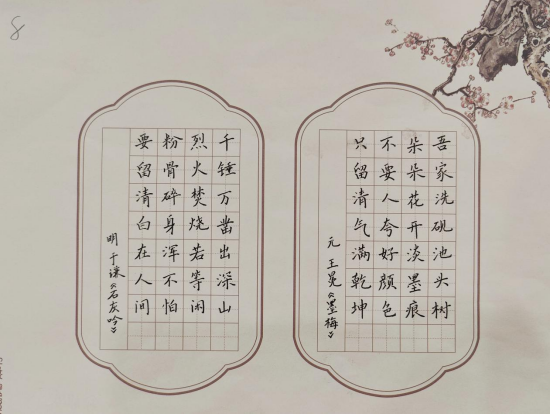 8
吾家洗砚池头树
朵朵花开淡墨痕
不要人夸好颜色
只留清气满乾坤
元 王冕《墨梅》
千锤万凿出深山
烈火焚烧若等闲
粉骨碎身浑不怕
要留清白在人间
明 于谦《石灰吟》